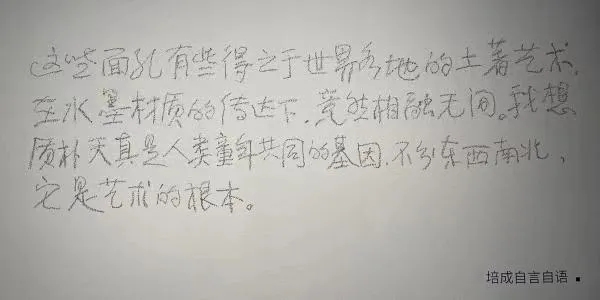 这些面孔有些得之于世界各地的土著艺术，
在水墨材质的传达下，竟然相融无间。我想
质朴天真是人类童年共同的基因，不分东西南北，
它是艺术的根本。
培成自言自语